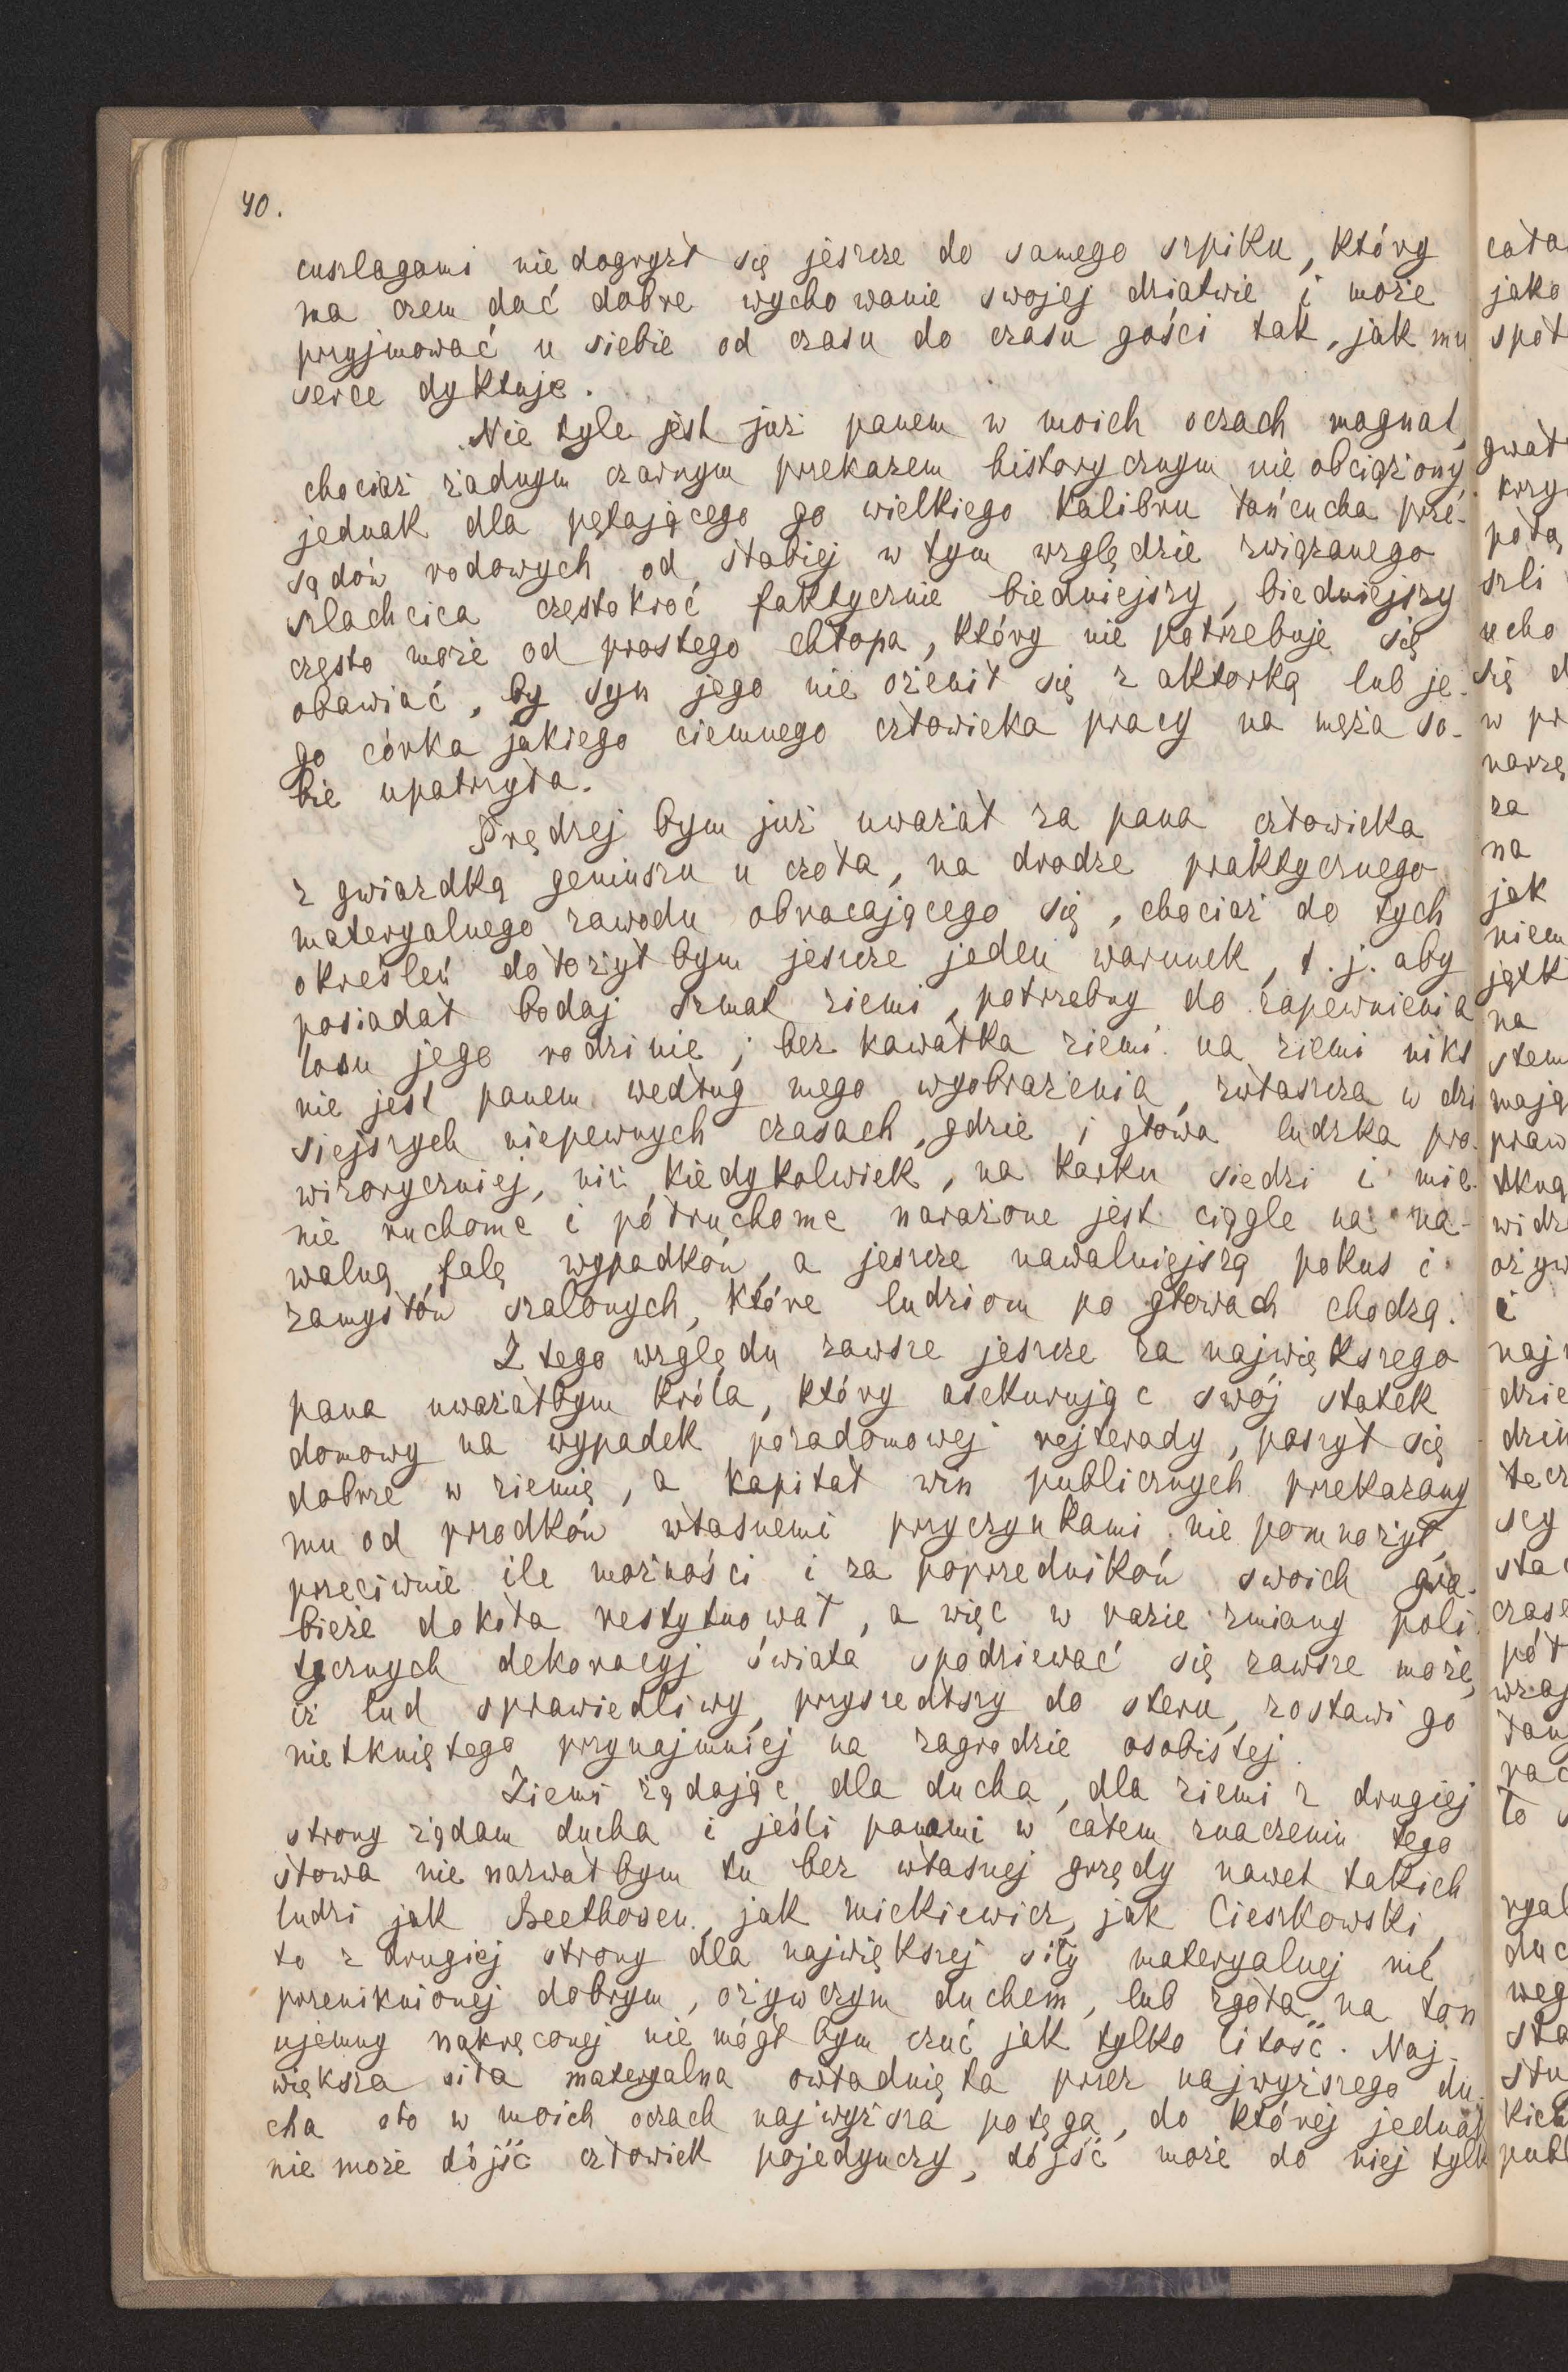 40.
cuszlagami nie dogryzł się jeszcze do samego szpiku, który
ma czem dać dobre wychowanie swojej dziatwie i może
przyjmować u siebie od czasu do czasu gości tak, jak mu
serce dyktuje.
Nie tyle jest już panem w moich oczach magnat,
chociaż żadnym czarnym przekazem historycznym nie obciążony,
jednak dla pętającego go wielkiego kalibru łańcucha prze-
sądów rodowych od słabiej w tym względzie związanego
szlachcica częstokroć faktycznie biedniejszy, biedniejszy
często może od prostego chłopa, który nie potrzebuje się
obawiać, by syn jego nie ożenił się z aktorką lub je-
go córka jakiego ciemnego człowieka pracy na męża so-
bie upatrzyła.
Prędzej bym już uważał za pana człowieka
z gwiazdką geniuszu u czoła, na drodze praktycznego
materyalnego zawodu obracającego się, chociaż do tych
określeń dołożyłbym jeszcze jeden warunek, t.j. aby
posiadał bodaj szmat ziemi, potrzebny do zapewnienia
losu jego rodzinie; bez kawałka ziemi na ziemi nikt
nie jest panem według mego wyobrażenia, zwłaszcza w dzi
siejszych niepewnych czasach, gdzie i głowa ludzka pro-
wizoryczniej, niż kiedykolwiek, na karku siedzi i mie-
nie ruchome i półruchome narażone jest ciągle na na-
walną falę wypadków, a jeszcze nawalniejszą pokus i
zamysłów szalonych, które ludziom po głowach chodzą.
Z tego względu zawsze jeszcze za największego
pana uważałbym króla, który asekurując swój statek
domowy na wypadek pozadomowej rejterady, zaszył się
dobrze w ziemię, a kapitał win publicznych przekazany
mu od przodków własnemi przyczynkami nie pomnożył,
przeciwnie ile możności i za poprzedników swoich gra-
bieże dokoła restytuował, a więc w razie zmiany poli-
tycznych dekoracyj świata spodziewać się zawsze może,
iż lud sprawiedliwy, przyszedłszy do steru, zostawi go
nietkniętego przynajmniej na zagrodzie osobistej.
Ziemi żądając dla ducha, dla ziemi z drugiej
strony żądam ducha i jeśli panami w całem znaczeniu tego
słowa nie nazwałbym tu bez własnej grzędy nawet takich
ludzi jak Beethoven, jak Mickiewicz, jak Cieszkowski,
to z drugiej strony dla największej siły materyalnej nie
przeniknionej dobrym, ożywczym duchem, lub zgoła na ton
ujemny nakręconej nie mógłbym czuć jak tylko litość. Naj-
większa siła materyalna owładnięta przez najwyższego du-
cha oto w moich oczach najwyższa potęga, do której jednak
nie może dójść człowiek pojedynczy, dójść może do niej tylk